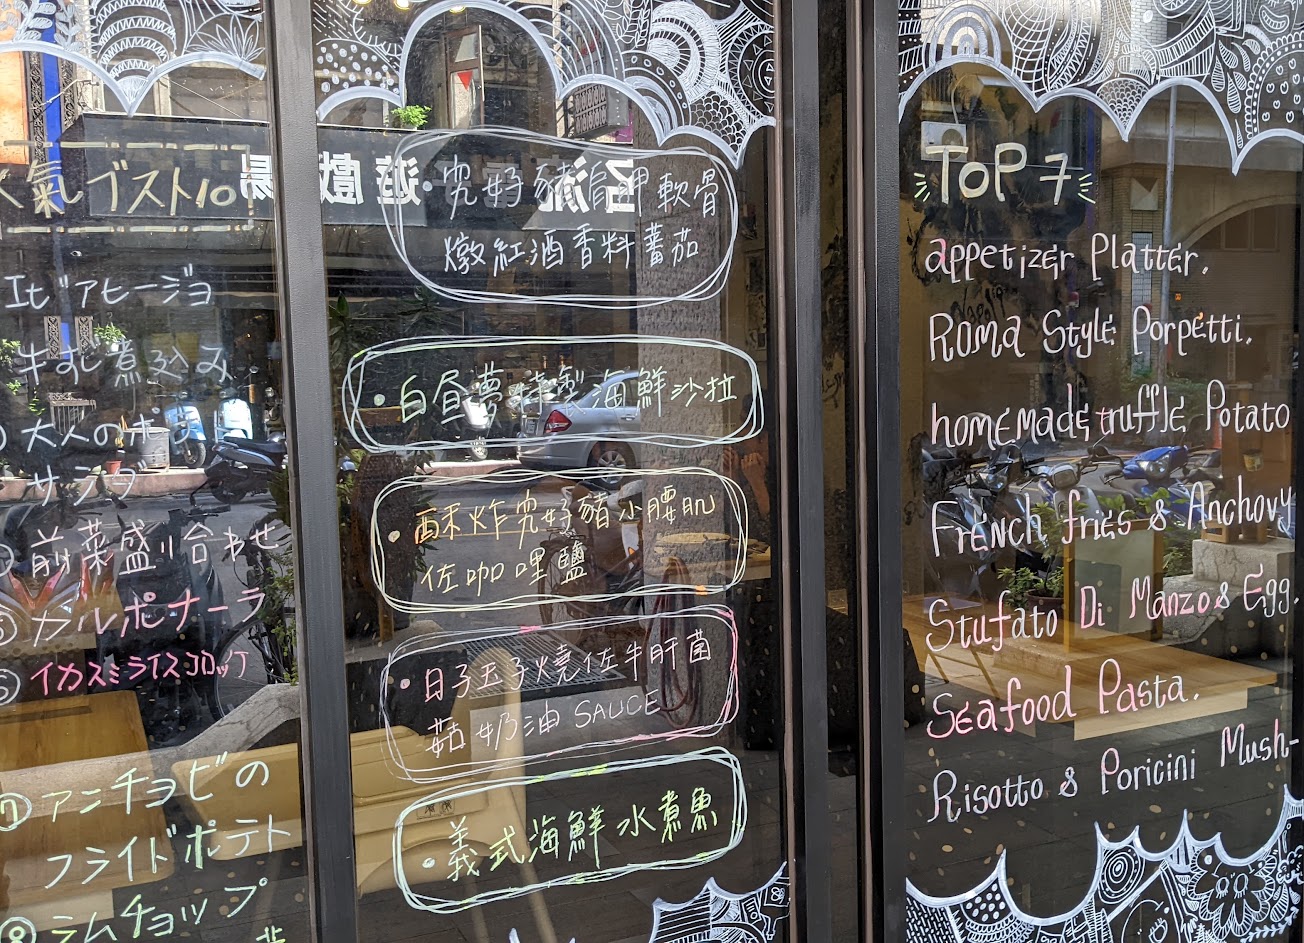 人氣ブスト10
エビアヒージョ
牛すじ煮込み
大人のポン
サンタ
前菜盛り合わせ
⑤カルボナーラ
⑥イカスミライスコロッケ
⑦アンチョビの
フライドポテト
⑧ラムチョップ
・究好豬肩胛軟骨
燉紅酒香料蕃茄
・白昼夢特製海鮮沙拉
・酥炸究好豬小腰肌
佐咖哩鹽
・日子玉子燒佐牛肝菌
菇奶油SAUCE
・義式海鮮水煮魚
TOP 7
appetizer Platter.
Roma Style Porpetti.
homemade truffle Potato
French fries & Anchovy
Stufato Di Manzo & Egg.
Seafood Pasta.
Risotto & Poricini Mush-